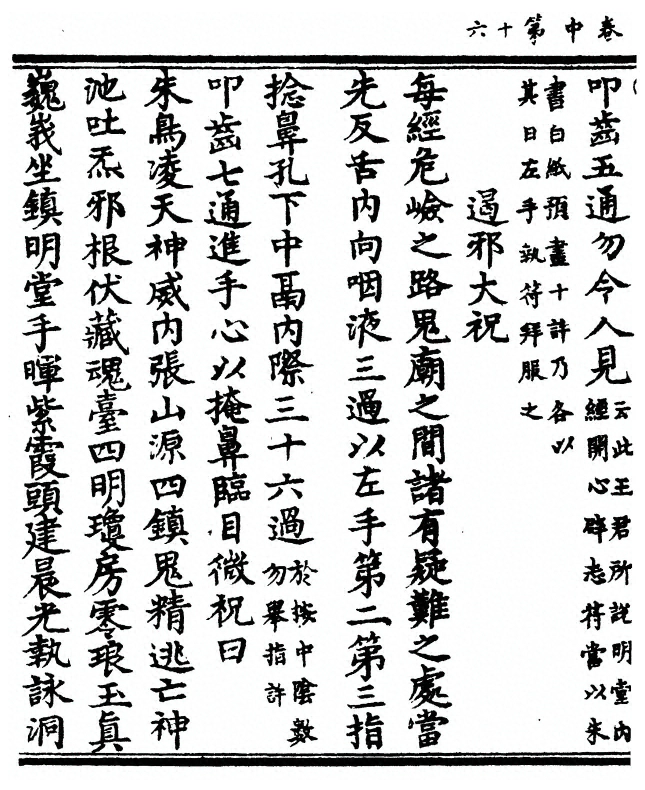 卷中第十六
叩齒五通勿令人見云此王君所説明堂内經開心辟忘符當以朱
書白紙預畫十許乃各以其日左手執符拜服之
遏邪大祝
每經危嶮之路鬼廟之間諸有疑難之處當
先反舌内向咽液三過以左手第二第三指
捻鼻孔下中鬲内際三十六過於按中陰數勿舉指許
叩齒七通進手心以掩鼻臨目微祝曰
朱鳥凌天神威内張山源四鎮鬼精逃亡神
池吐炁邪根伏藏魂臺四明瓊房零琅玉真
巍峩坐鎮明堂手暉紫霞頭建晨光執詠洞